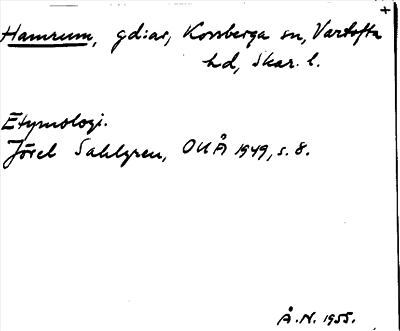 +
Hamrum, gd:ar, Korsberga sn, Vartofta
hd, Skar. l.
Etymologi.
Jöret Sahlgren, OUÅ 1949, s. 8.
Å. N. 1955.